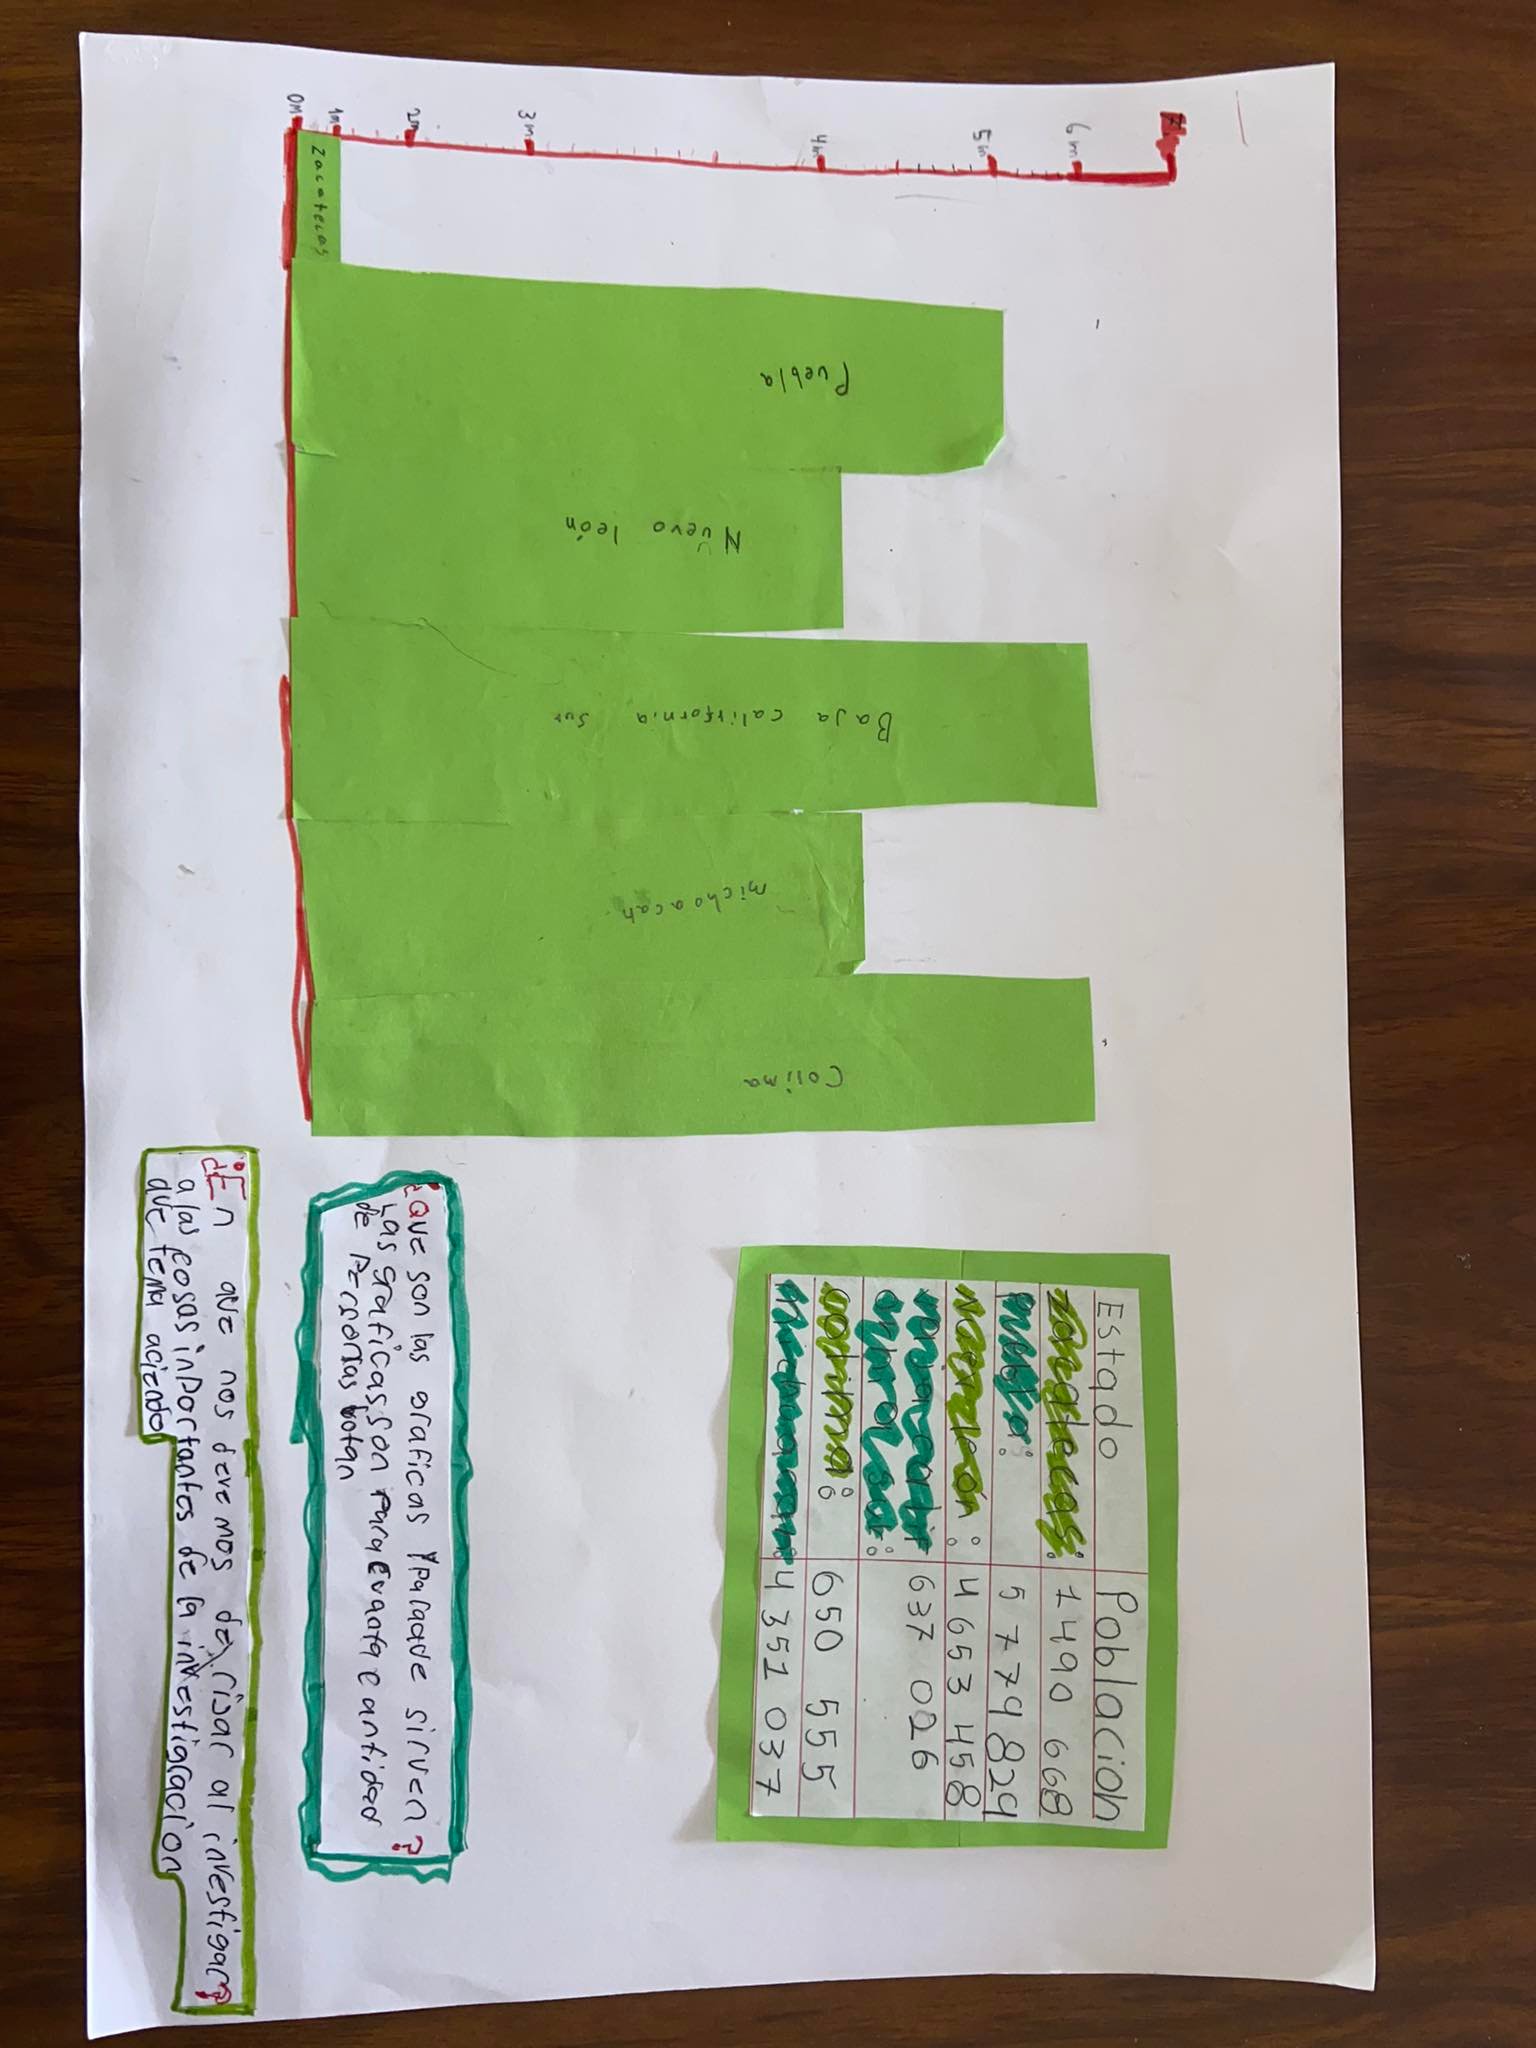 7
6m
5m
4m
3m
2m
1m
0m
Zacatecas
Puebla
Nuevo león
Baja calirfornia sur
michoacan
Colima
Estado Poblacion
zacatecas: 1490 668
puebla: 5 779 829
Nuevo león: 4 653 458
637 026
sur:
colima: 650 555
michuacan: 4 351 037
¿Que son las graficas y paraque sirven?
Las graficas son para cuanta cantidad
de Personas botan
¿En que nos devemos de fijar al investigar?
a las cosas inportantes de la investigracion
que tema aciendo